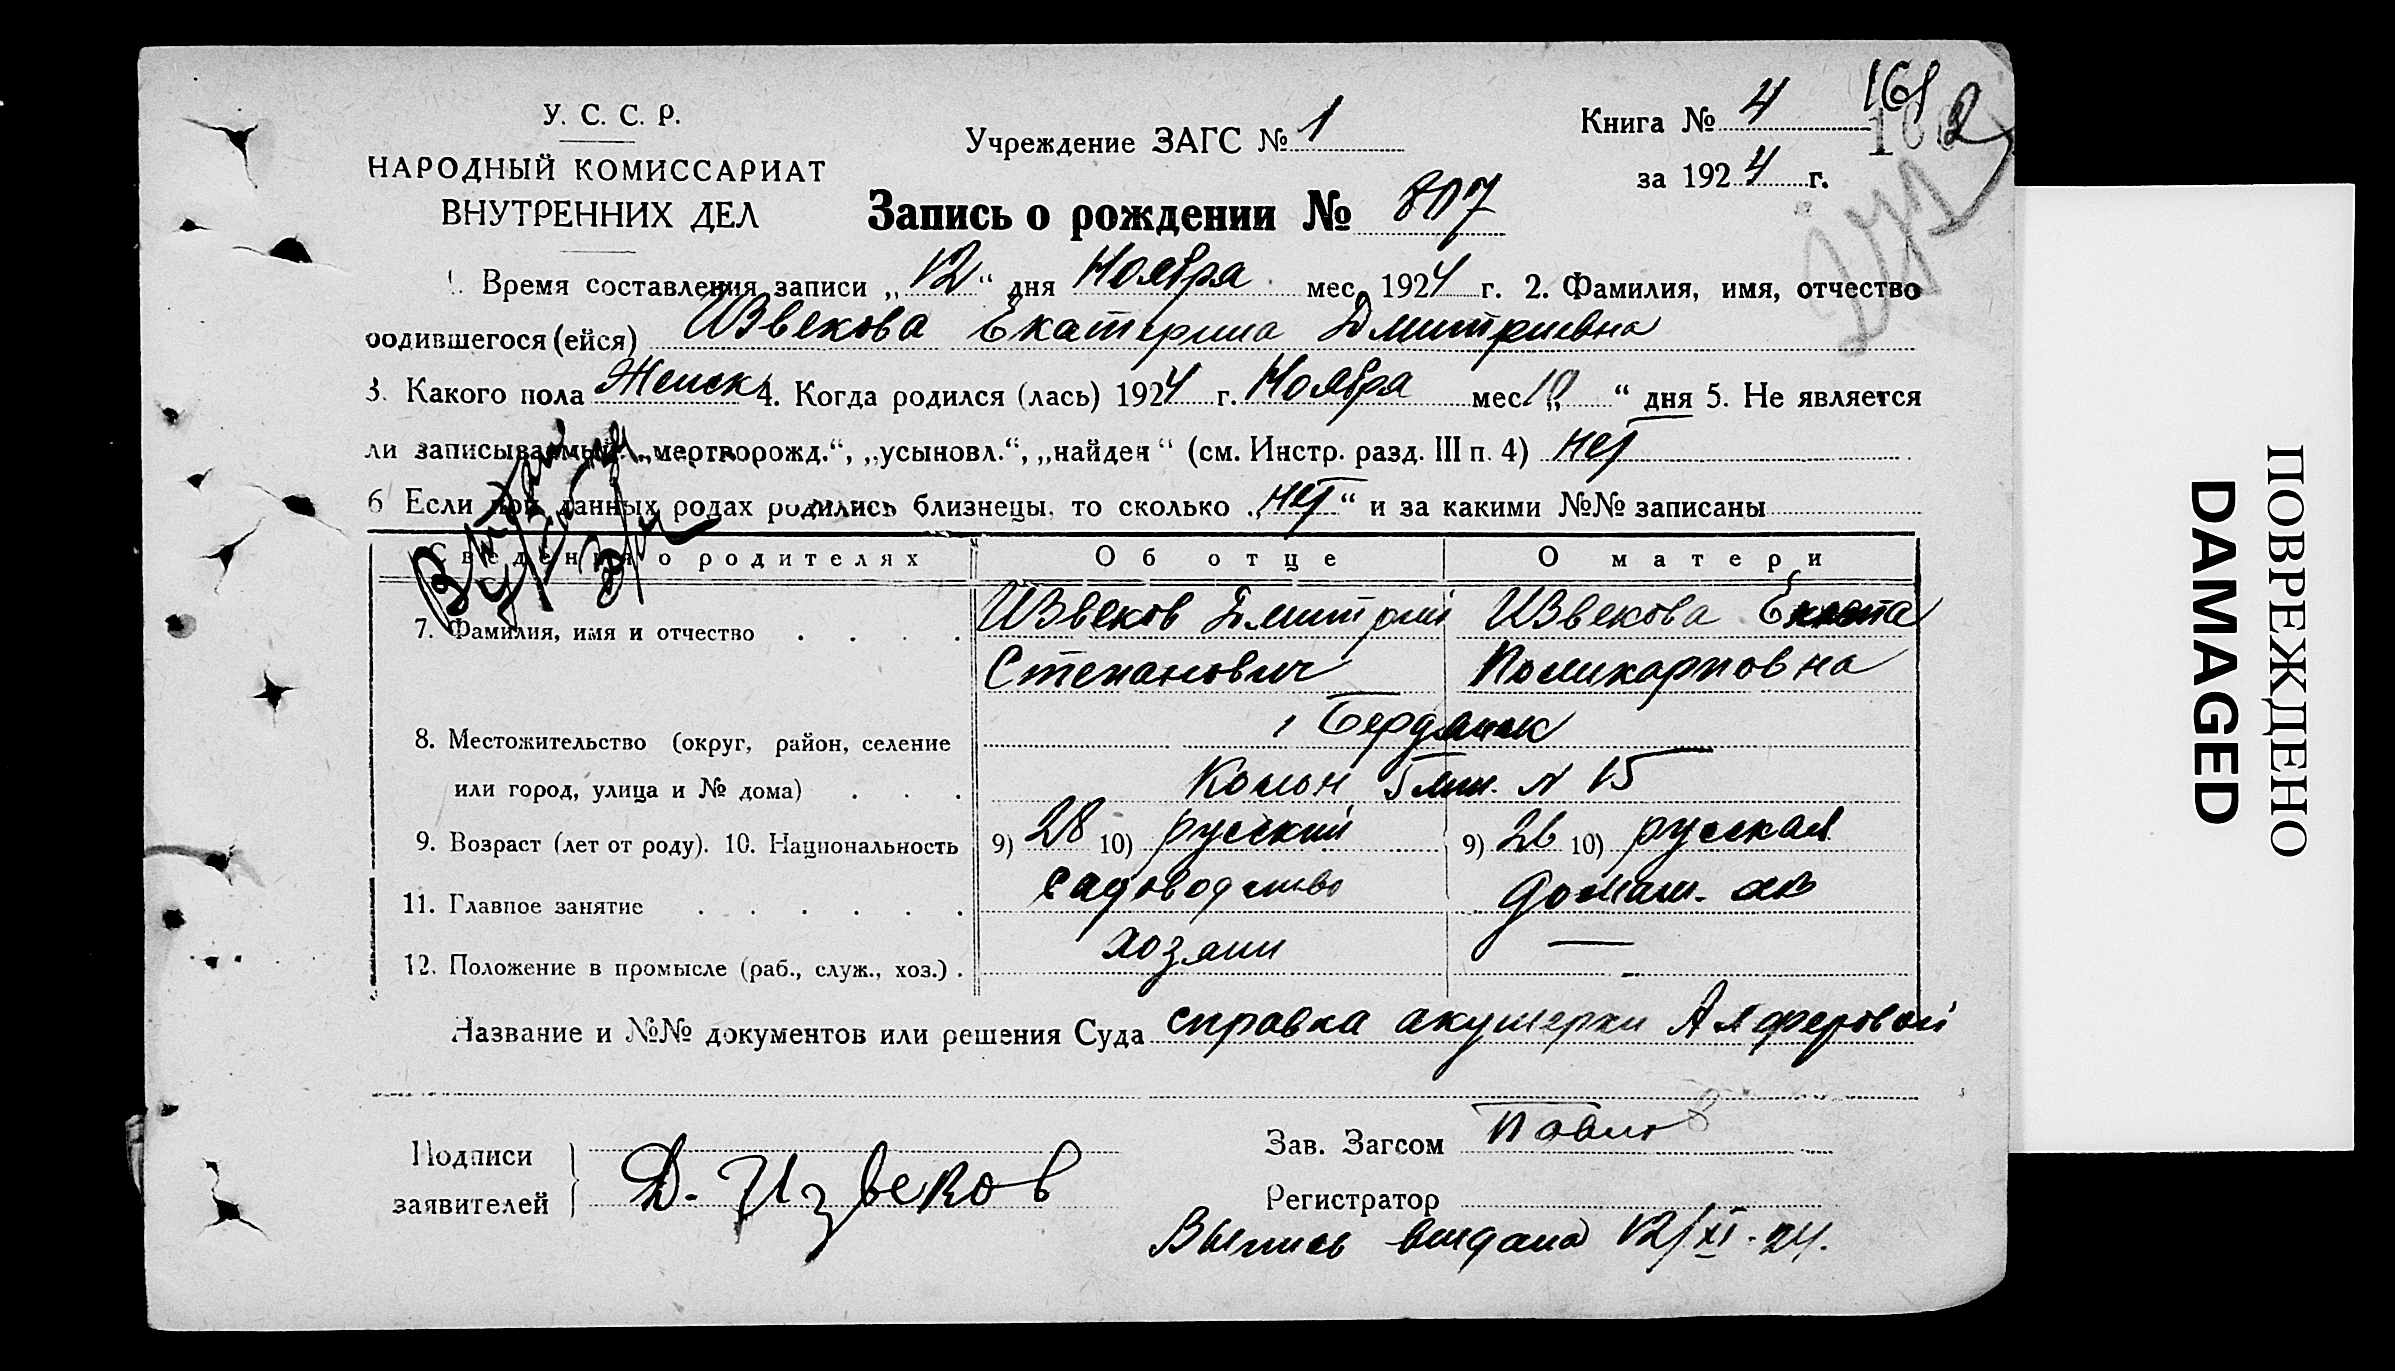 У. С. С. Р.
НАРОДНЫЙ КОМИССАРИАТ
ВНУТРЕННИХ ДЕЛ
Учреждение ЗАГС № 1
Книга № 4
161
за 1924 г.
Запись о рождении № 807
1. Время составления записи „12“ дня Ноября мес. 1924 г. 2. Фамилия, имя, отчество
родившегося (ейся) Извекова Екатерина Дмитриевна
3. Какого пола Женск 4. Когда родился (лась) 1924 г. Ноября мес. „10“ дня 5. Не является
ли записываемый „мертворожд.“, „усыновл.“, „найден“ (см. Инстр. разд. III п. 4) нет
6 Если при данных родах родились близнецы, то сколько „нет“ и за какими №№ записаны
Сведения о родителях Об отце О матери
7. Фамилия, имя и отчество Извеков Дмитрий Извекова
Степанович Поликарповна
8. Местожительство (округ, район, селение г Бердянск
или город, улица и № дома) N 15
9. Возраст (лет от роду). 10. Национальность 9) 28 10) русский 9) 26 10) русская
11. Главное занятие садоводство домаш.
12. Положение в промысле (раб., служ., хоз.) хозяин —
Название и №№ документов или решения Суда справка акушерки Алферовой
Подписи
заявителей
Д. Извеков
Зав. Загсом Павлов
Регистратор
Выпись выдана 12/XI-24.
ПОВРЕЖДЕНО
DAMAGED